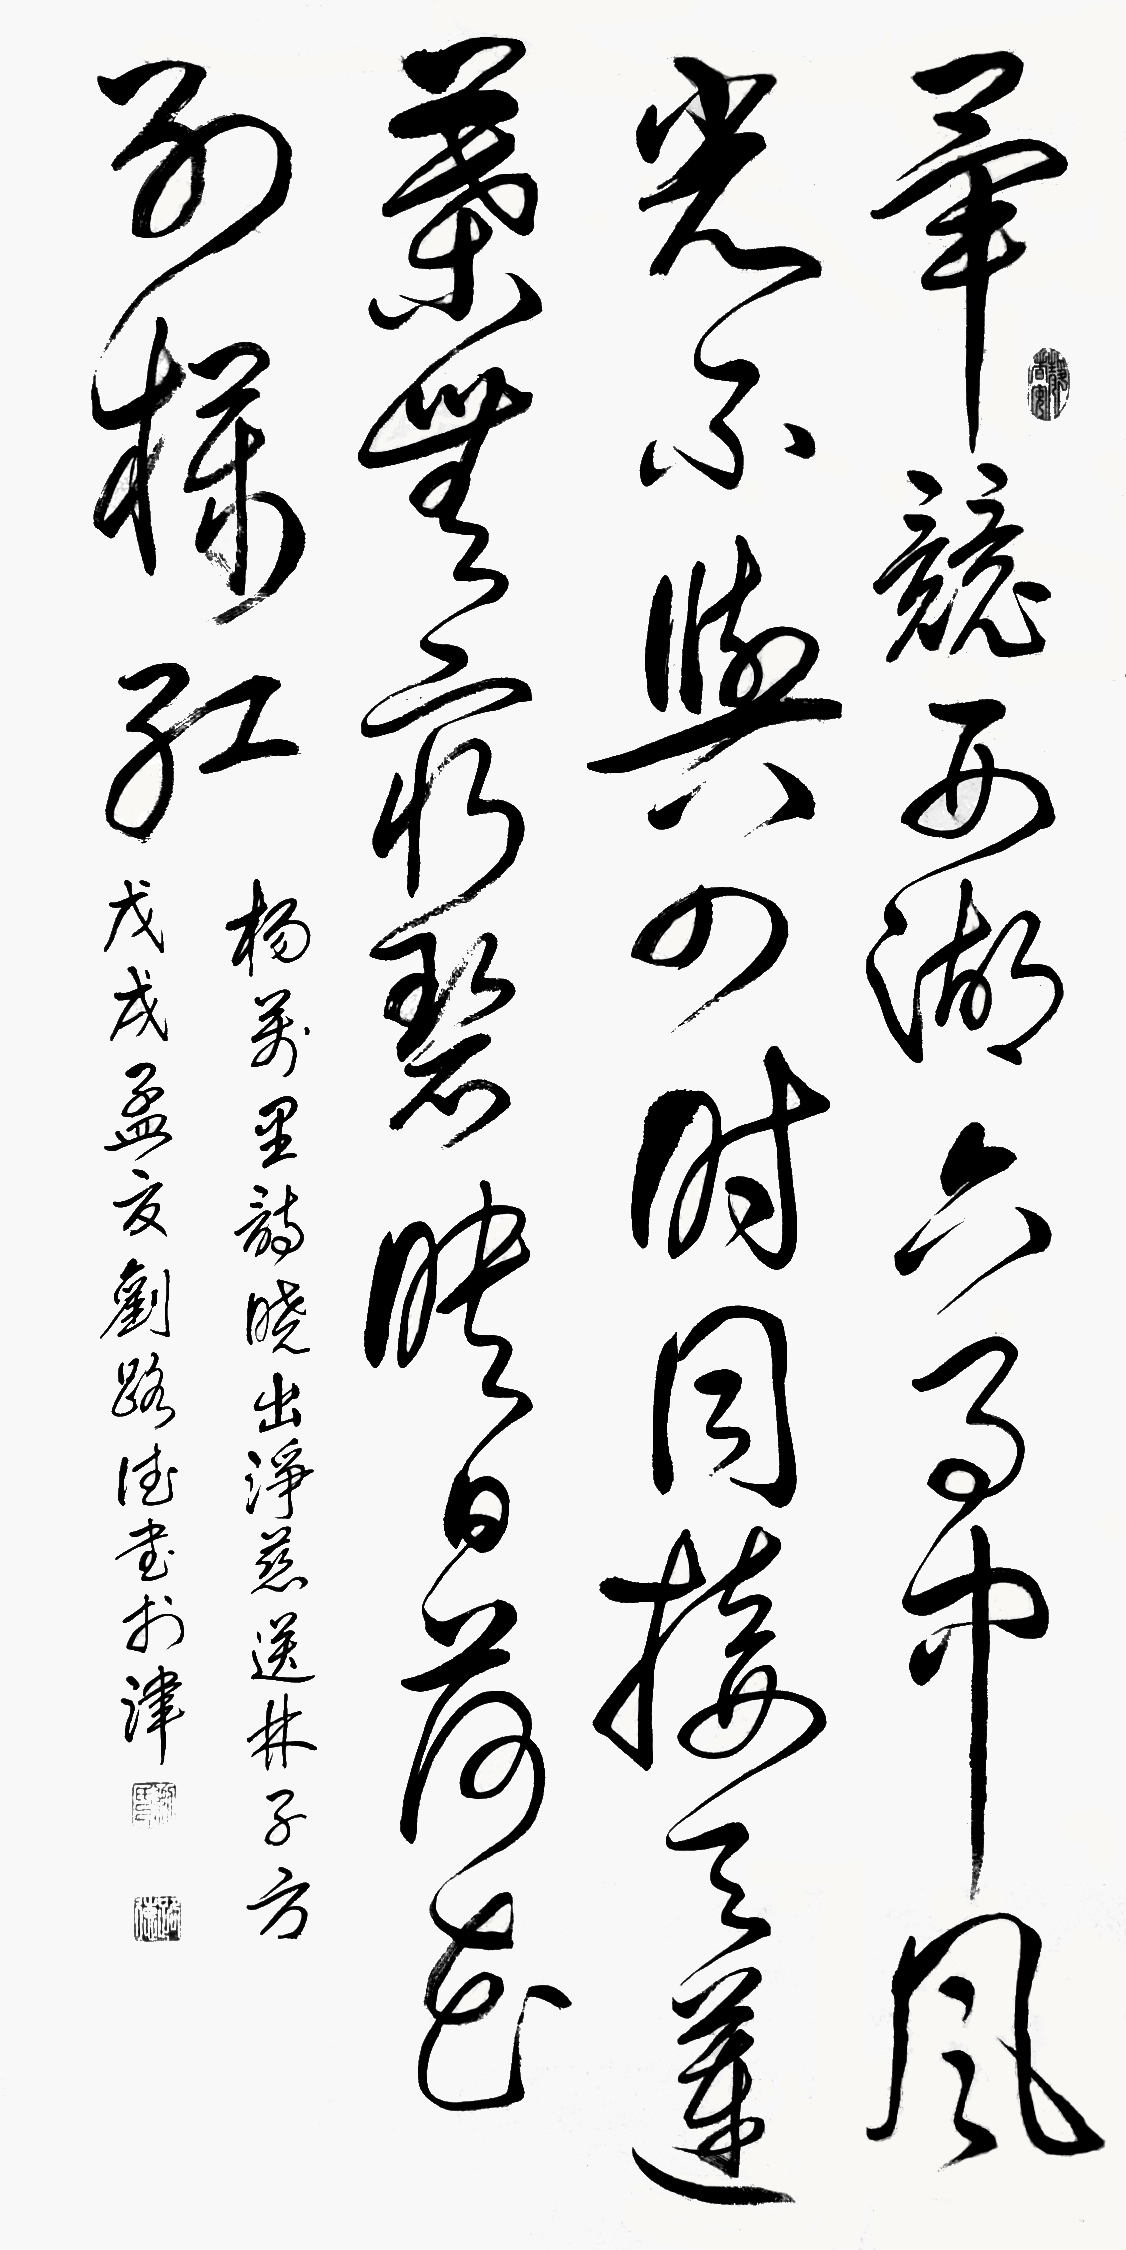 畢競西湖六月中風
光不與四時同接天蓮
葉無窮碧映日荷花
別樣紅
楊萬里詩曉出淨慈送林子方
戊戌孟夏劉路德書於津